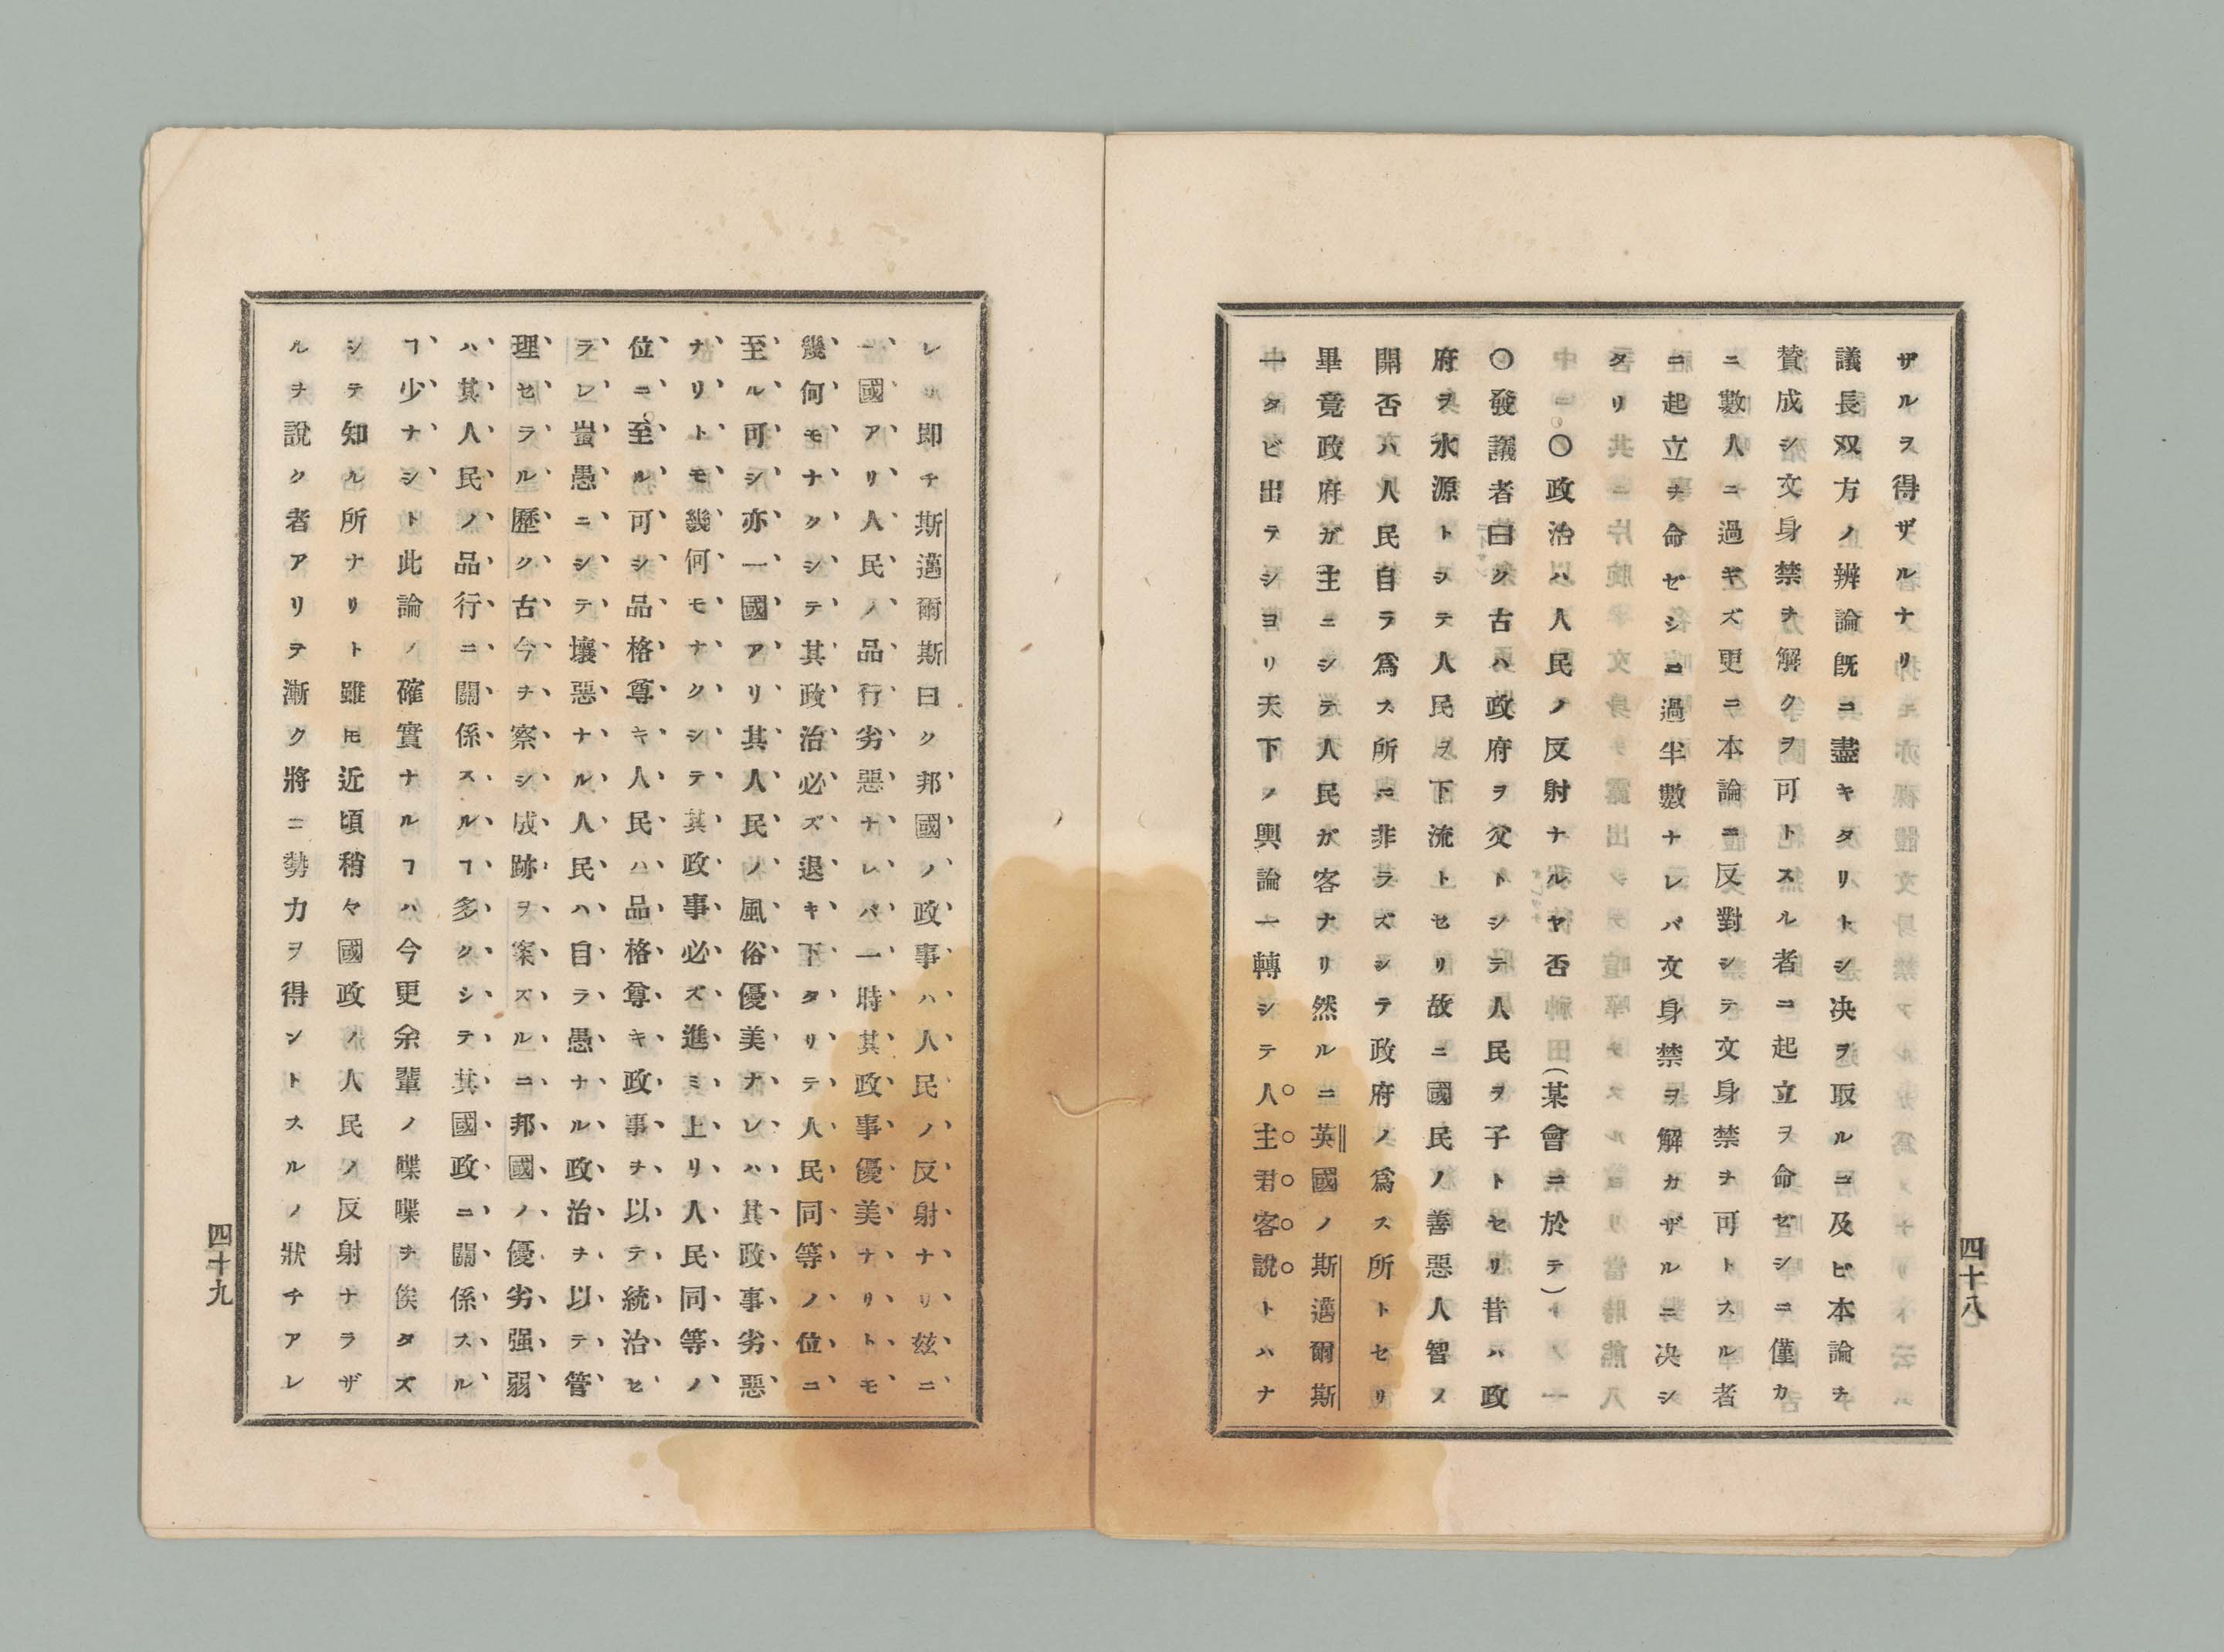 ザルス得ザルナリ
議長双方ノ辨論既ニ盡キタリトシ决ヲ取ルニ及ビ本論ヲ
贊成シ文身禁ヲ解クヲ可トスル者ニ起立ヲ命ゼシニ僅カ
ニ數人ニ過ギズ更ニ本論ニ反對シテ文身禁ヲ可トスル者
ニ起立ヲ命ゼシニ過半數ナレバ文身禁ヲ解カザルニ决シ
タリ
〇政治ハ人民ノ反射ナルヤ否(某會ニ於テ)
〇發議者曰ク古ハ政府ヲ父トシテ人民ヲ子トセリ昔ハ政
府ヲ水源トシテ人民ヲ下流トセリ故ニ國民ノ善惡人智ノ
開否ハ人民自ラ爲ス所ニ非ラズシテ政府ノ爲ス所トセリ
畢竟政府ガ主ニシテ人民ガ客ナリ然ルニ英國ノ斯邁爾斯
一タビ出テシヨリ天下ノ輿論一轉シテ人主君客說トハナ
四十八
レリ即チ斯邁爾斯曰ク邦國ノ政事ハ人民ノ反射ナリ玆ニ
一國アリ人民ノ品行劣惡ナレバ一時其政事優美ナリトモ
幾何モナクシテ其政治必ズ退キ下タリテ人民同等ノ位ニ
至ル可シ亦一國アリ其人民ノ風俗優美ナレハ其政事劣惡
ナリトモ幾何モナクシテ其政事必ズ進ミ上リ人民同等ノ
位ニ至ル可シ品格尊キ人民ハ品格尊キ政事ヲ以テ統治セ
ラレ蚩愚ニシテ壞惡ナル人民ハ自ラ愚ナル政治ヲ以テ管
理セラル歷ク古今ヲ察シ成跡ヲ案ズルニ邦國ノ優劣强弱
ハ其人民ノ品行ニ關係スルヿ多クシテ其國政ニ關係スル
ヿ少ナシト此論ノ確實ナルヿハ今更余輩ノ喋喋ヲ俟タズ
シテ知ル所ナリト雖𪜈近頃稍々國政ノ人民ノ反射ナラザ
ルヲ說ク者アリテ漸ク將ニ勢力ヲ得ントスルノ狀チアレ
四十九